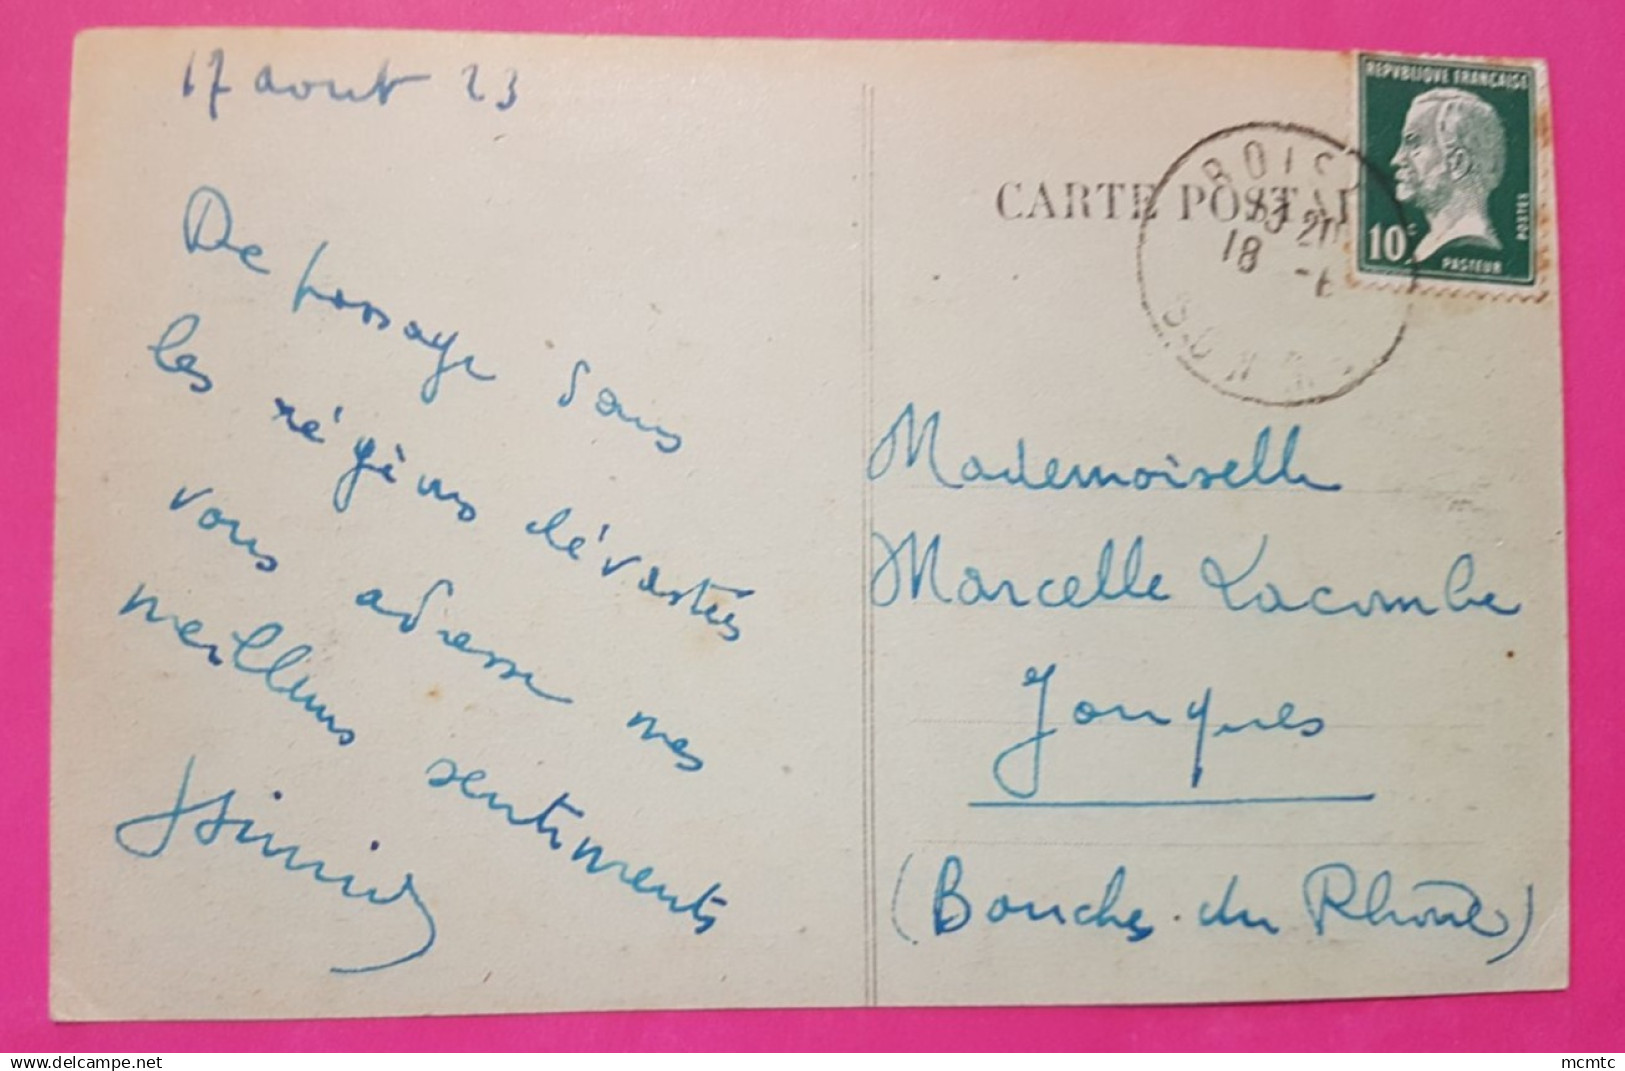 17 aout 23
De passage dans
les régions dévastées
vous adresse mes
meilleurs sentiments
CARTE POSTA
REPVBLIQUE FRANÇAISE
10c
POSTES
PASTEUR
BOIS
13 20
18 -
Mademoiselle
Marcelle Lacombe
Jouques
(Bouches-du Rhône)
https://www.delcampe.net
mcmtc